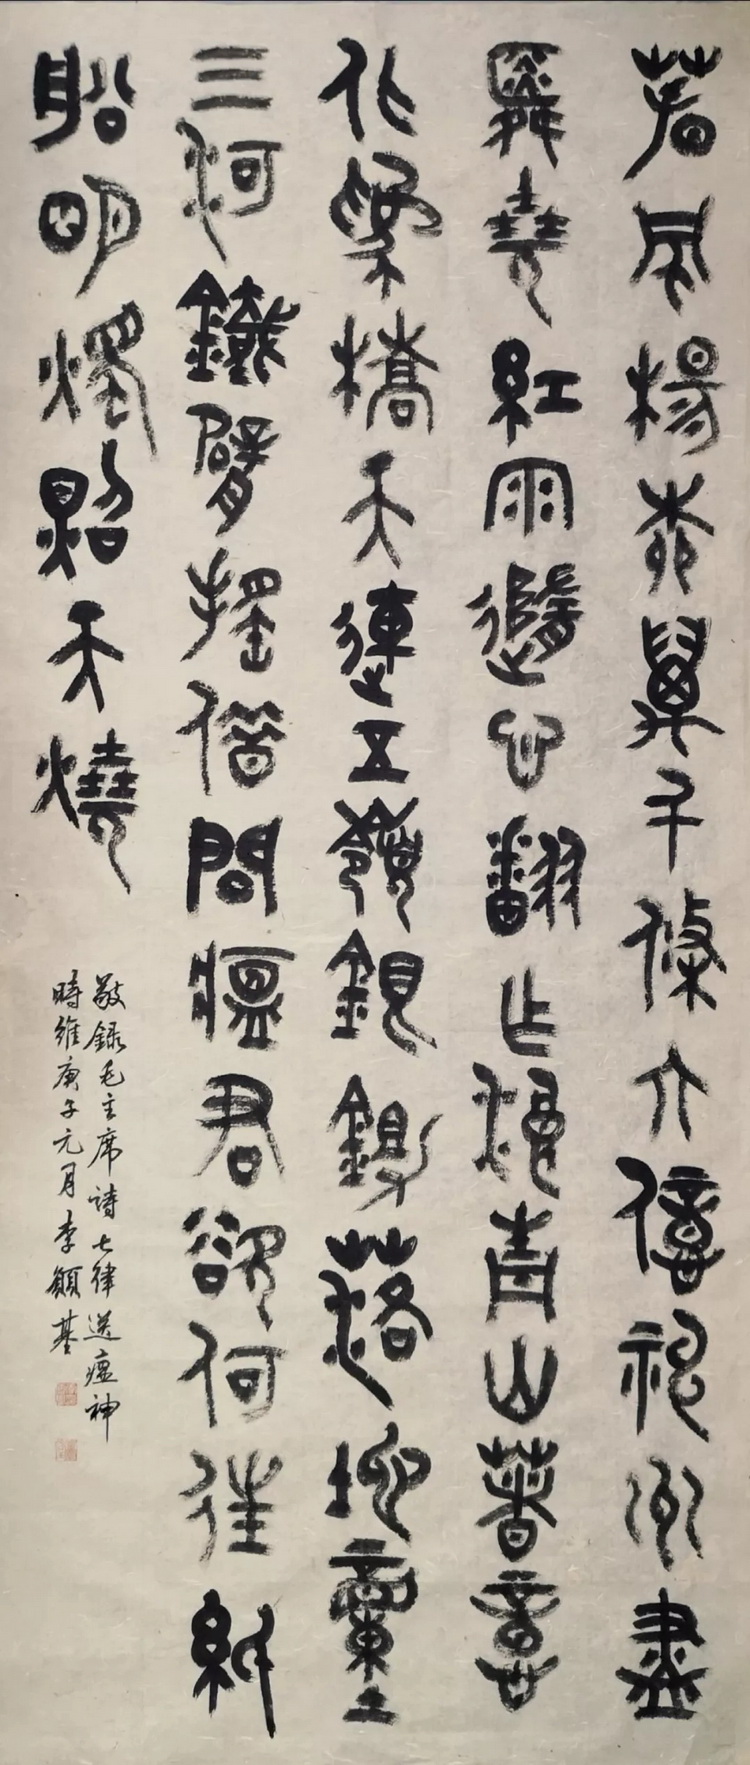 春风杨柳万千條六億神州盡
舜堯紅雨隨心翻作浪青山著意
化為橋天連五嶺銀鋤落地動
三河鐵臂搖借問瘟君欲何往紙
船明燭照天燒
敬録毛主席詩七律送瘟神
時維庚子元月李顧基